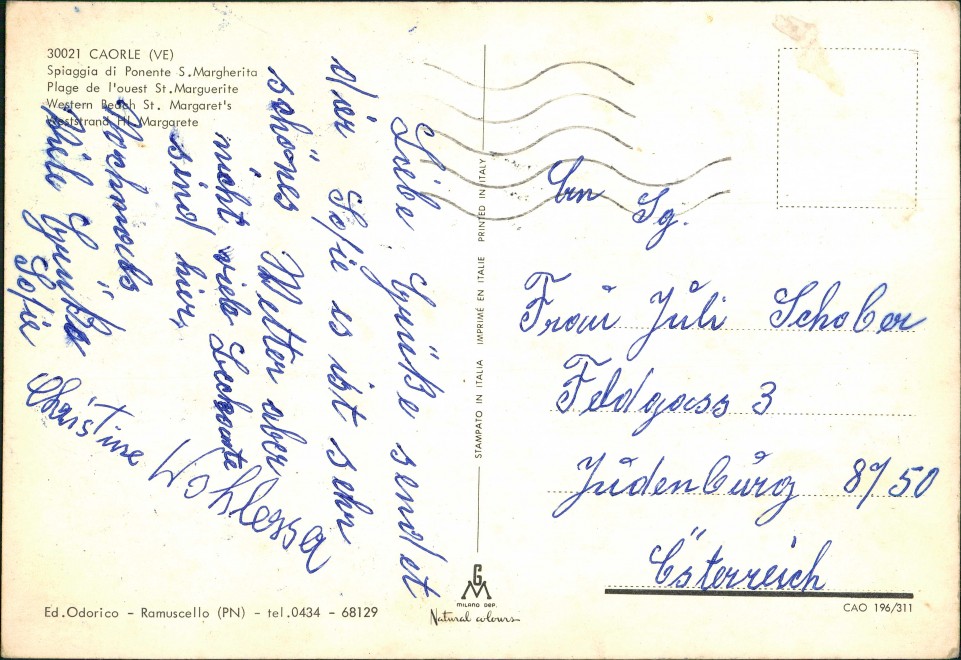 30021 CAORLE (VE)
Spiaggia di Ponente S.Margherita
Plage de l'ouest St.Marguerite
Western Beach St. Margaret's
Weststrand Hl. Margarete
Liebe Grüße sendet
dir Sofie es ist sehr
schönes Wetter aber
nicht viele
sind hier,
Nochmals
Viele Grüße
Sofie
Christine
STAMPATO IN ITALIA IMPRIMÉ EN ITALIE PRINTED IN ITALY
Sg.
Frau Juli Schober
Feldgass 3
Judenburg 8750
Österreich
Ed.Odorico - Ramuscello (PN) - tel.0434 - 68129
GM
MILANO DEP.
Natural colours
CAO 196/311